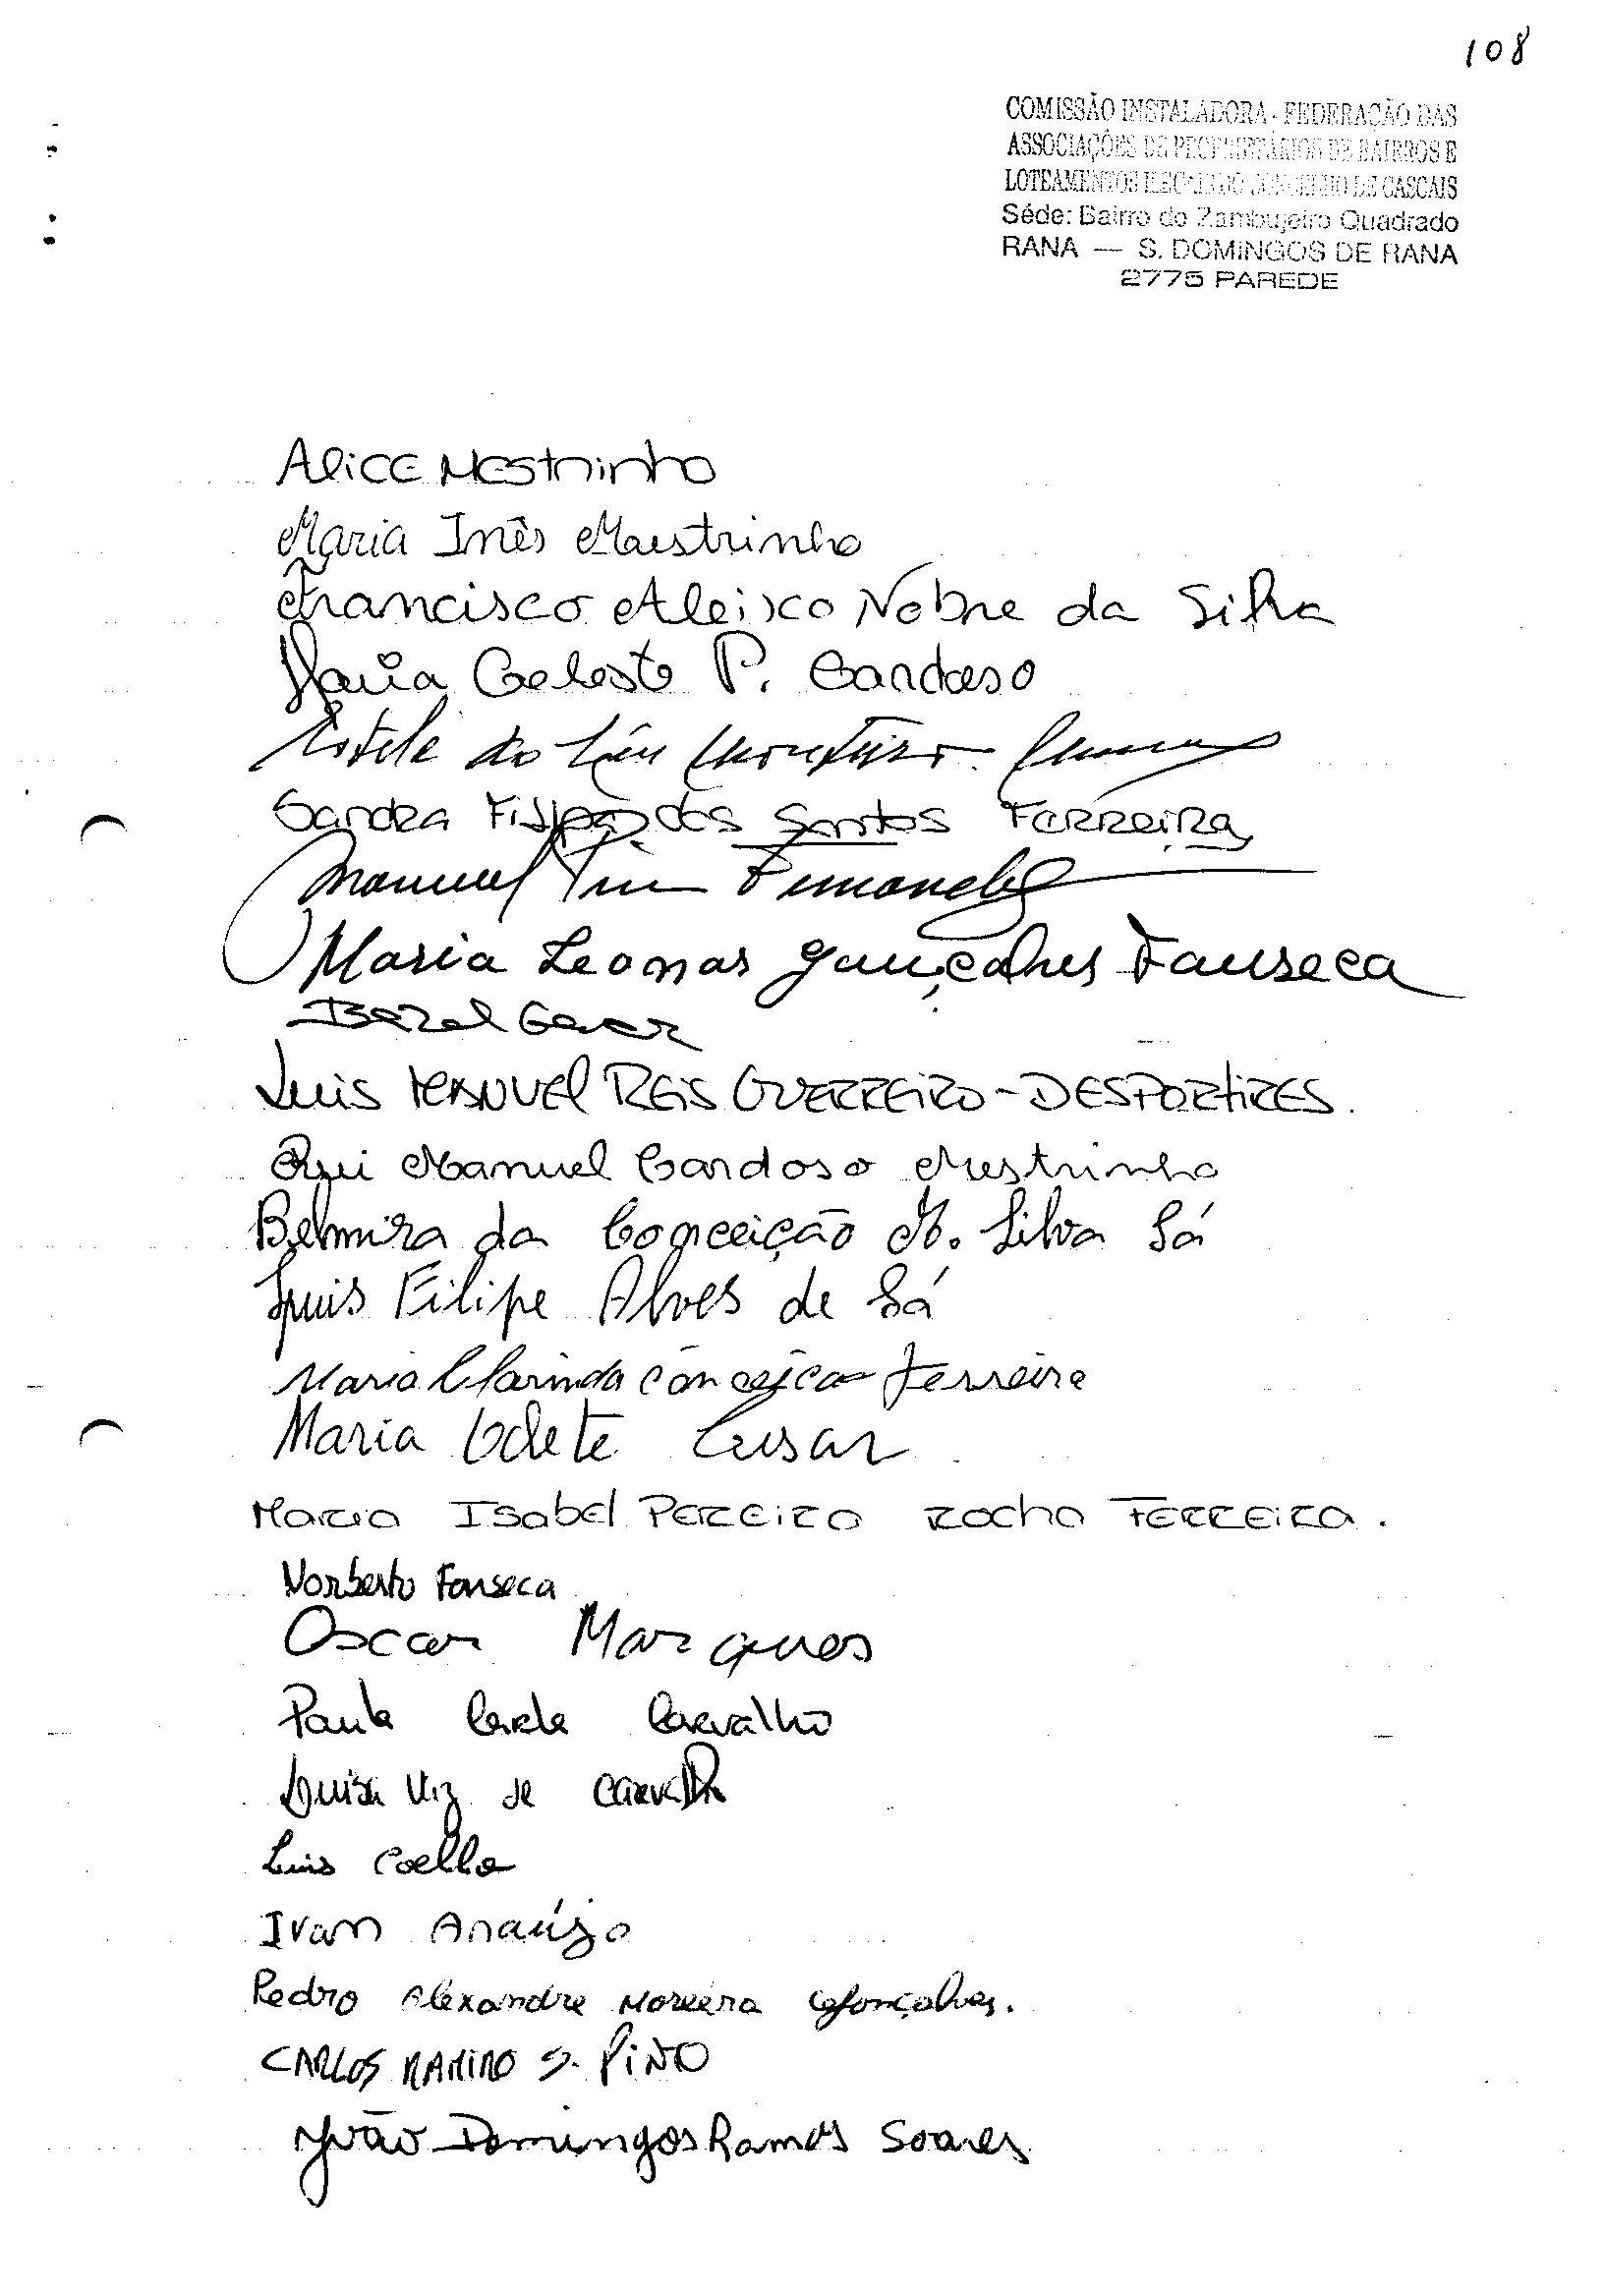 108
COMISSÃO INSTALADORA - FEDERAÇÃO DAS
ASSOCIAÇÕES DE PROPRIETÁRIOS DE BAIRROS E
LOTEAMENTOS ILEGAIS DO CONCELHO DE CASCAIS
Séde: Bairro do Zambujeiro Quadrado
RANA — S. DOMINGOS DE RANA
2775 PAREDE
Alice Mestrinho
Maria Inês Maestrinho
Francisco Aleixo Nobre da Silva
Maria Celeste P. Cardoso
do Céu Monteiro
Sandra Filipa dos Santos Ferreira
Manuel Fernandes
Maria Leonor Gonçalves Fonseca
Luis Manuel Reis Guerreiro - DESPORTIRES.
Rui Manuel Cardoso Mestrinho
Belmira da Conceição M. Silva Sá
Luis Filipe Alves de Sá
Maria Clarinda Conceição Ferreira
Maria Odete Cusar
Maria Isabel Pereira Rocha Ferreira.
Norberto Fonseca
Oscar Marques
Paula Carla Carvalho
Luisa Viz de Carvalho
Luis Coelho
Ivan Araújo
Pedro Alexandre Moreira Gonçalves.
CARLOS RAMIRO S. PINTO
João Domingos Ramos Soares